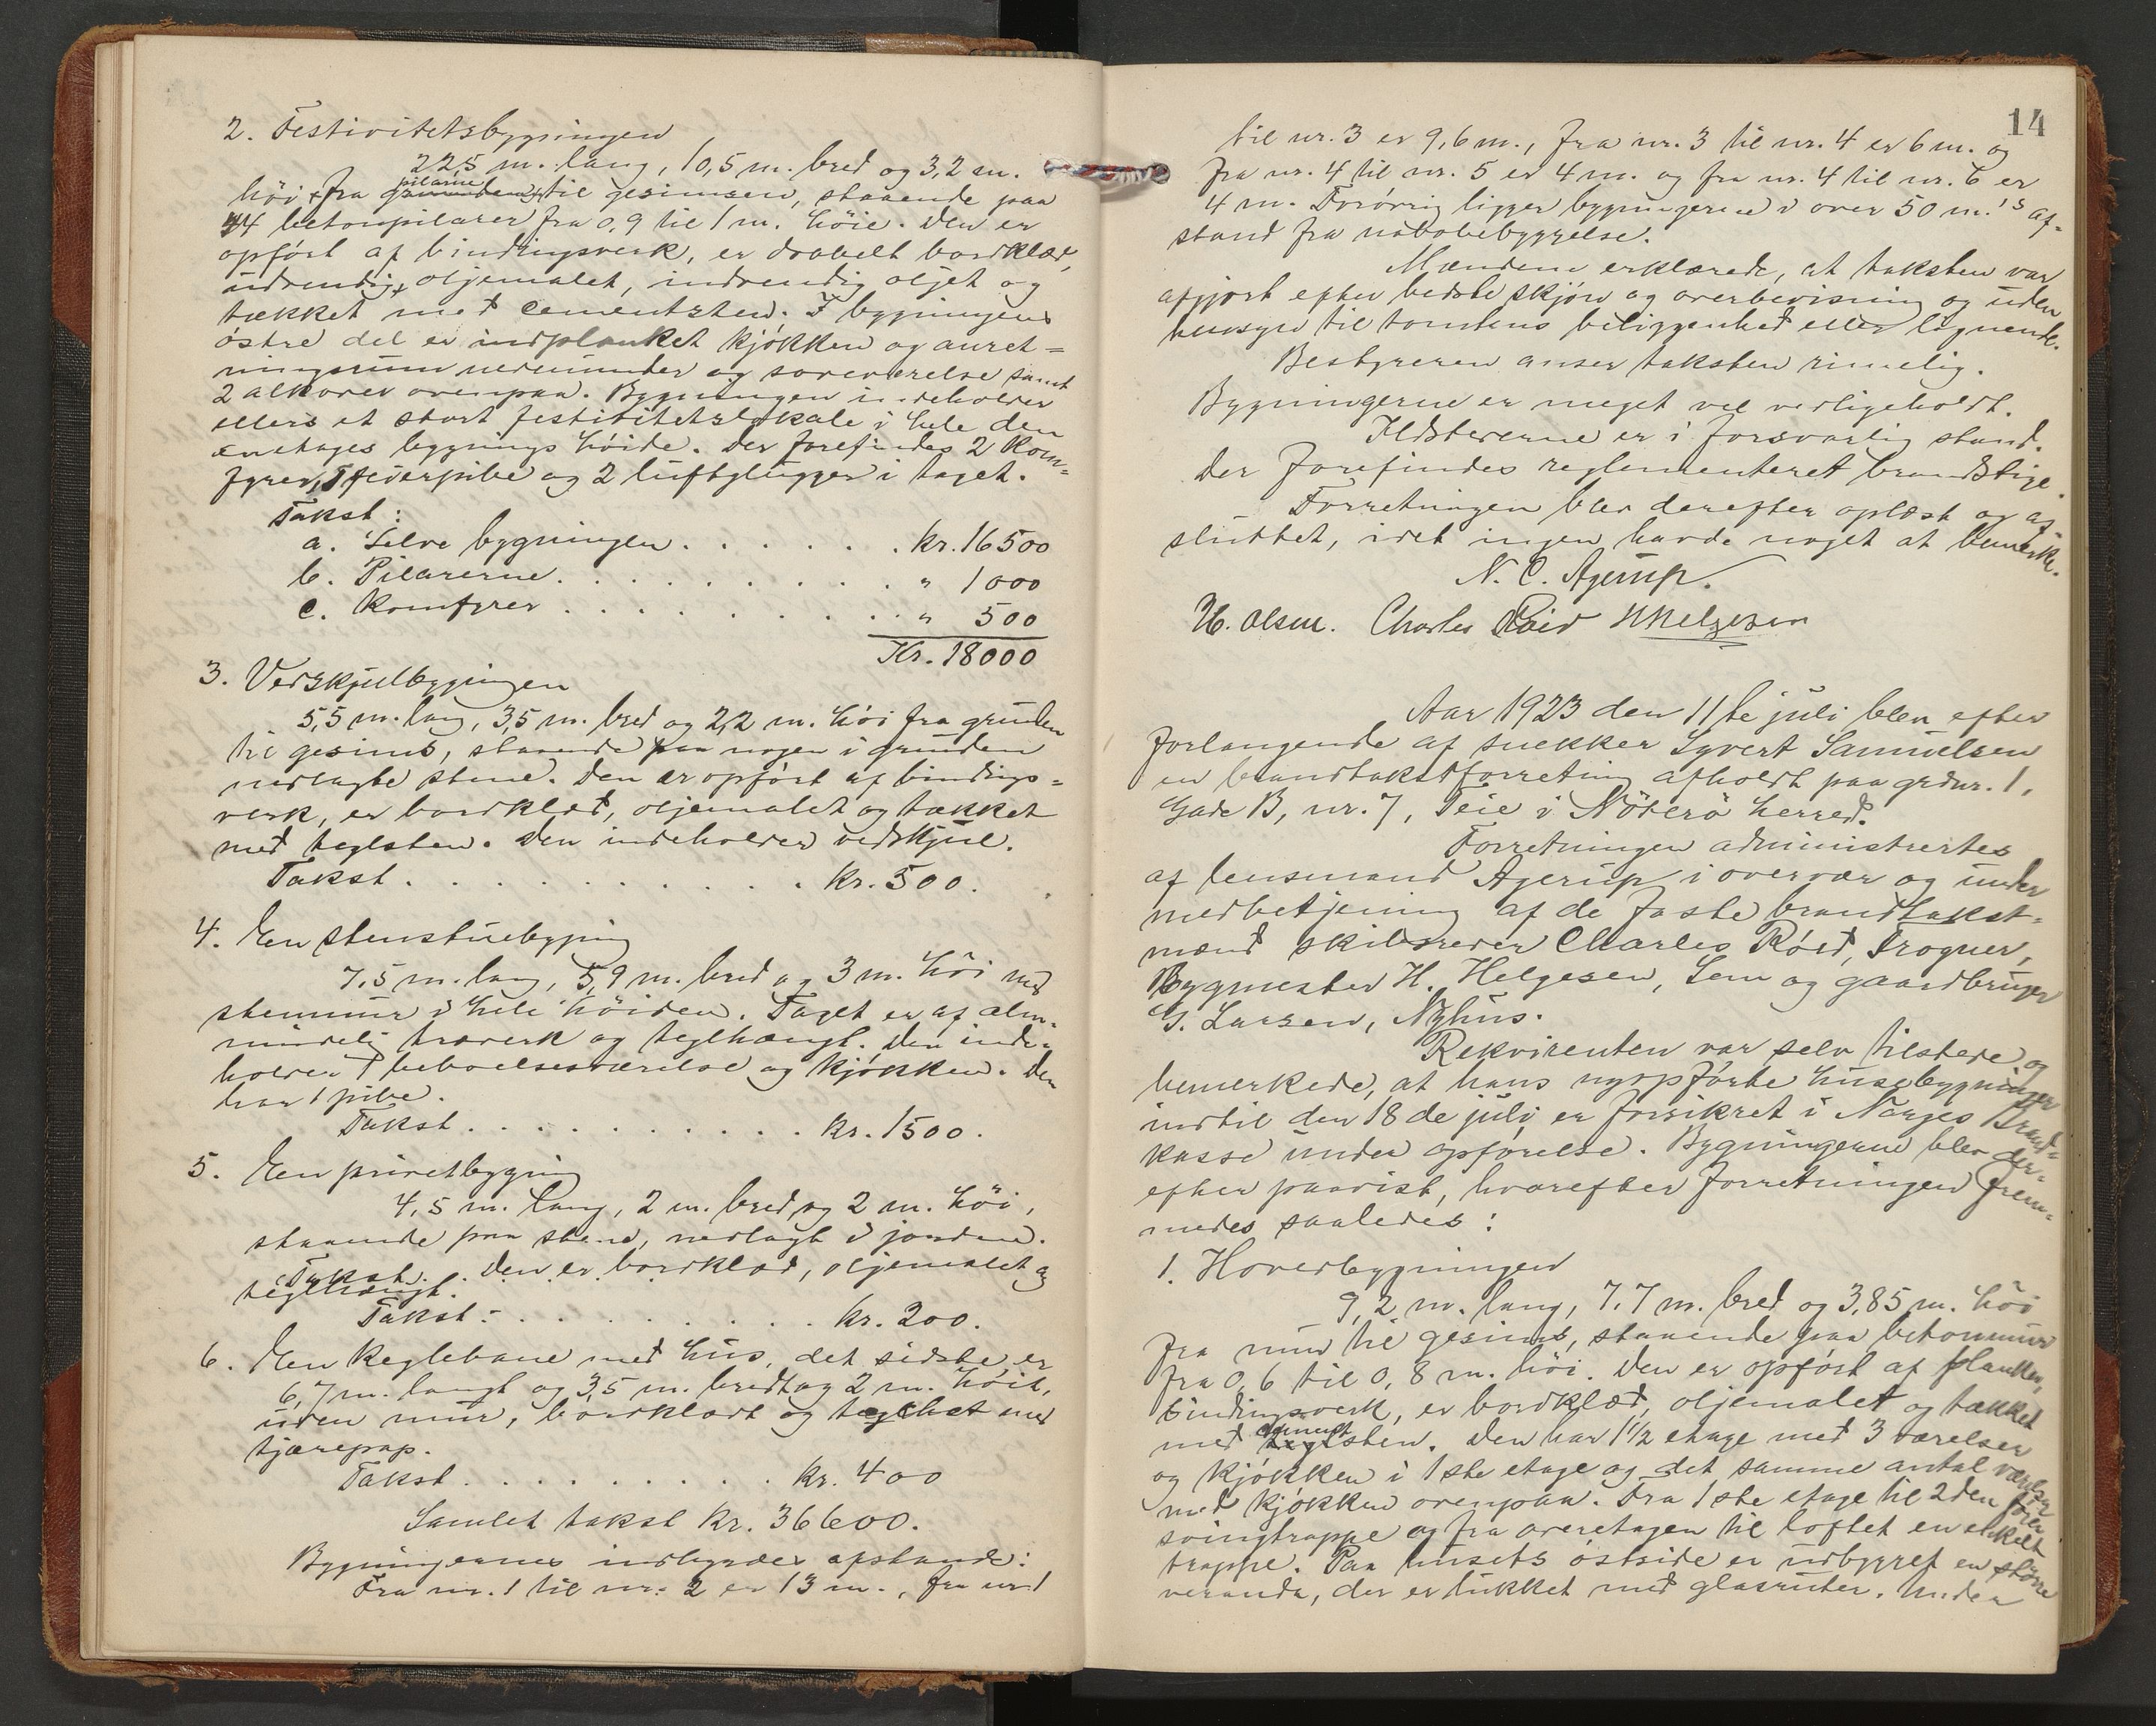 2. Festivitetsbygningen
22,5 m. lang, 10,5 m. bred og 3,2 m.
höi fra grunden pilarne til gesimsen, staaende paa
44 betonpilarer fra 0,9 til 1 m. höie. Den er
opfört af bindingsverk, er dobbelt bordklæd,
udvendig oljemalet, indvendig oljet og
tækket med cementsten. I bygningens
östre del er indplanket kjökken og anret=
ningsrum nedenunder og soveværelse samt
2 alkover ovenpaa. Bygningen indeholder
ellers et stort festivitetslokale i hele den
enetages bygnings höide. Der forefindes 2 kom=
fyrer, 1 fjederpibe og 2 luftglugger i taget.
Takst:
a. Selve bygningen . . . . . . kr. 16500
b. Pilarerne . . . . . . . . . " 1000
c. Komfyrer . . . . . . . . . " 500
Kr. 18000
3. Vedskjulbygningen
5,5 m. lang, 3,5 m. bred og 2,2 m. höi fra grunden
til gesims, staaende paa nogen i grunden
nedlagte stene. Den er opfört af bindings=
verk, er bordklæd, oljemalet og tækket
med teglsten. Den indeholder vedskjul.
Takst . . . . . . . . . . . kr. 500.
4. En stenstuebygning
7,5 m. lang, 5,9 m. bred og 3 m. höi med
stenmur i hele höiden. Taget er af alm=
mindelig træverk og teglhængt. Den inde=
holder 1 beboelsesværelse og kjökken. Den
har 1 pibe.
Takst . . . . . . . . . . . kr. 1500.
5. En privetbygning
4,5 m. lang, 2 m. bred og 2 m. höi,
staaende paa stene, nedlagt i jorden.
Takst. . Den er bordklæd, oljemalet og
teglhængt.
Takst: . . . . . . . . . . kr. 200.
6. En Keglebane med hus, det sidste er
6,7 m. langt og 3,5 m. bredt og 2 m. höit,
uden mur, bordklædt og tækket med
tjærepap.
Takst . . . . . . . . . . kr. 400
Samlet takst kr. 36600.
Bygningernes indbyrdes afstande:
Fra nr. 1 til nr. 2 er 13 m., fra nr 1
14
til nr. 3 er 9,6 m., fra nr. 3 til nr. 4 er 6 m. og
fra nr. 4 til nr. 5 er 4 m. og fra nr. 4 til nr. 6 er
4 m. Forövrig ligger bygningerne i over 50 m.'s af=
stand fra nabobebyggelse.
Mændene erklærede, at taksten var
afgjort efter bedste skjön og overbevisning og uden
hensyn til tomtens beliggenhed eller lignende.
Bestyreren anser taksten rimelig.
Bygningerne er meget vel vedligeholdt.
Ildstederne er i forsvarlig stand.
Der forefindes reglementeret brandstige.
Forretningen blev derefter oplæst og af=
sluttet, idet ingen havde noget at bemerke.
N. C. Agerup.
H. Olsen. Charles Röed H Helgesen
Aar 1923 den 11te juli blev efter
forlangende af snekker Syvert Samuelsen
en brandtakstforretning afholdt paa grdnr. 1,
Gade B, nr. 7, Teie i Nöterö herred.
Forretningen administrertes
af lensmand Agerup i overvær og under
medbetjening af de faste brandtakst=
mænd skibsreder Charles Röed, Trogner,
Bygmester H. Helgesen, Sem og gaardbruger
G. Larsen, Nyhus.
Rekvirenten var selv tilstede og
bemerkede, at hans nyopförte husebygninger
indtil den 18de juli er forsikret i Norges Brand=
kasse under opförelse. Bygningerne blev der=
efter paavist, hvorefter forretningen frem=
medes saaledes:
1. Hovedbygningen
9,2 m. lang, 7,7 m. bred og 3,85 m. höi
fra mur til gesims, staaende paa betonmur
fra 0,6 til 0,8 m. höi. Den er opfört af planker,
bindingsverk, er bordklæd, oljemalet og tækket
med tegl cementsten. Den har 1 1/2 etage med 3 værelser
og kjökken i 1ste etage og det samme antal værelser
med kjökken ovenpaa. Fra 1ste etage til 2den förer
svingtrappe og fra överetagen til loftet en enkelt
trappe. Paa husets östside er udbygget en större
veranda, der er lukket med glasruter. Under